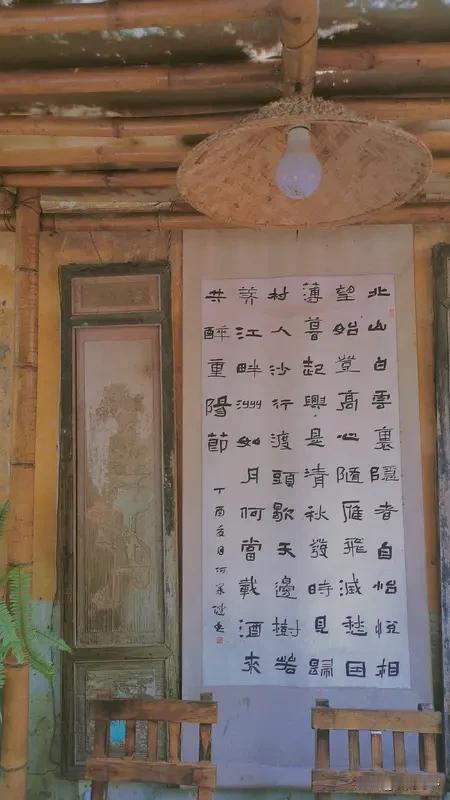 北山白雲裏隱者自怡悅相
望始登高心隨雁飛滅愁因
薄暮起興是清秋發時見歸
村人沙行渡頭歇天邊樹若
薺江畔洲如月何當載酒來
共醉重陽節
丁酉夏日